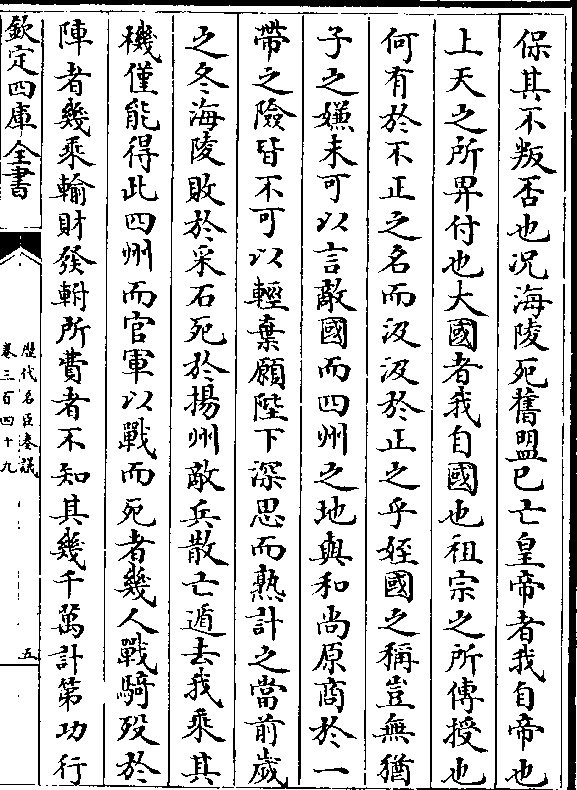 保其不叛否也况海陵死舊盟已亡皇帝者我自帝也
上天之所畀付也大國者我自國也祖宗之所傳授也
何有於不正之名而汲汲於正之乎姪國之稱豈無猶
子之嫌未可以言敵國而四州之地與和尚原商於一
帶之險皆不可以輕棄願陛下深思而熟計之當前歲
之冬海陵敗於采石死於揚州敵兵散亡遁去我乘其
機僅能得此四州而官軍以戰而死者幾人戰騎殁於
陣者幾乘輸財發㪺所費者不知其幾千萬計第功行
欽定四庫全書
歷代名臣奏議
卷三百四十九
五